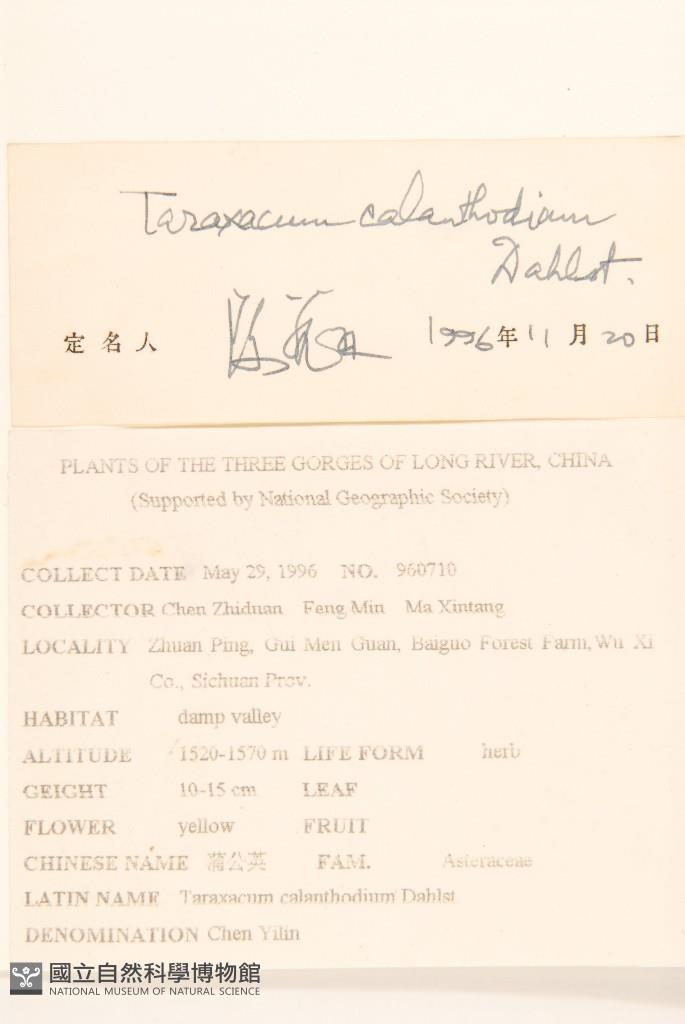 Taraxacum calanthodium
Dahlst.
定名人 1996年11月20日
PLANTS OF THE THREE GORGES OF LONG RIVER, CHINA
(Supported by National Geographic Society)
COLLECT DATE May 29, 1996 NO. 960710
COLLECTOR Chen Zhiduan Feng Min Ma Xintang
LOCALITY Zhuan Ping, Gui Men Guan, Baiguo Forest Farm, Wu Xi
Co., Sichuan Prov.
HABITAT damp valley
ALTITUDE 1520-1570 m LIFE FORM herb
GEIGHT 10-15 cm LEAF
FLOWER yellow FRUIT
CHINESE NAME 蒲公英 FAM. Asteraceae
LATIN NAME Taraxacum calanthodium Dahlst
DENOMINATION Chen Yilin
國立自然科學博物館
NATIONAL MUSEUM OF NATURAL SCIENCE